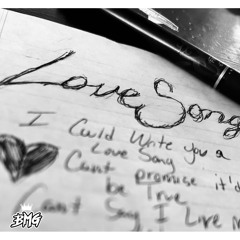 Love Song
I Could Write you a
Love Song
Cant promise it'd
be True
Cant Say I Live
BMG